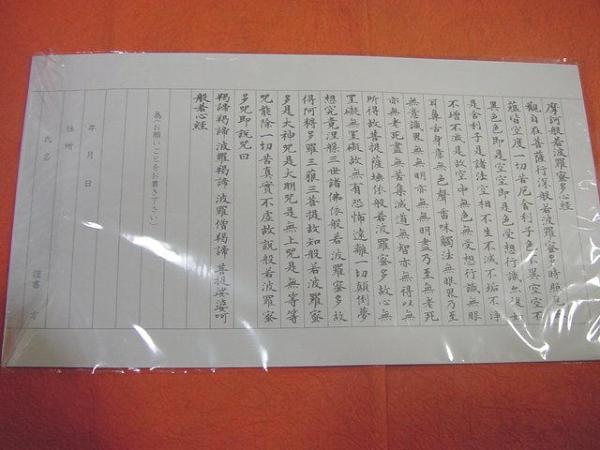 摩訶般若波羅蜜多心經
觀自在菩薩行深般若波羅蜜多時照見五
蘊皆空度一切苦厄舍利子色不異空空不
異色色即是空空即是色受想行識亦復如
是舍利子是諸法空相不生不滅不垢不淨
不增不減是故空中無色無受想行識無眼
耳鼻舌身意無色聲香味觸法無眼界乃至
無意識界無無明亦無無明盡乃至無老死
亦無老死盡無苦集滅道無智亦無得以無
所得故菩提薩埵依般若波羅蜜多故心無
罣礙無罣礙故無有恐怖遠離一切顛倒夢
想究竟涅槃三世諸佛依般若波羅蜜多故
得阿耨多羅三藐三菩提故知般若波羅蜜
多是大神咒是大明咒是無上咒是無等等
咒能除一切苦真實不虛故說般若波羅蜜
多咒即說咒曰
羯諦羯諦 波羅羯諦 波羅僧羯諦 菩提娑婆訶
般若心經
為(お願いごとをお書き下さい)
年 月 日
住所
氏名 謹書 才